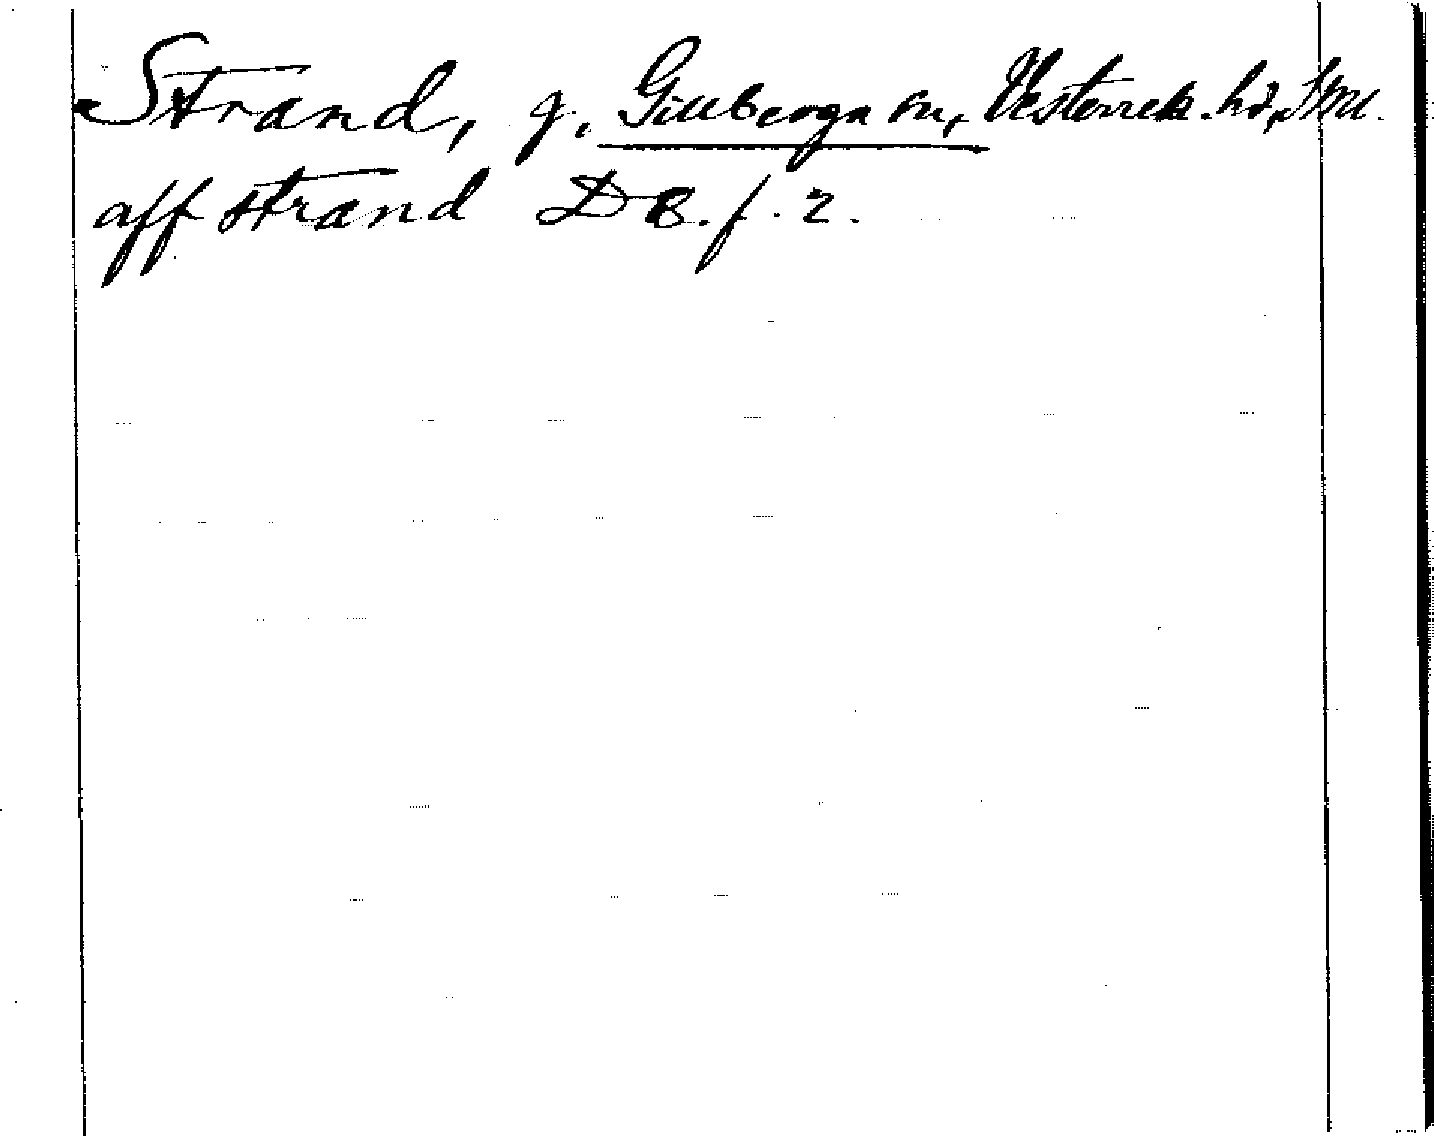 Strand, g. Gillberga sn, Vesterrek. hd, Sml.
aff strand DB. f. 2.